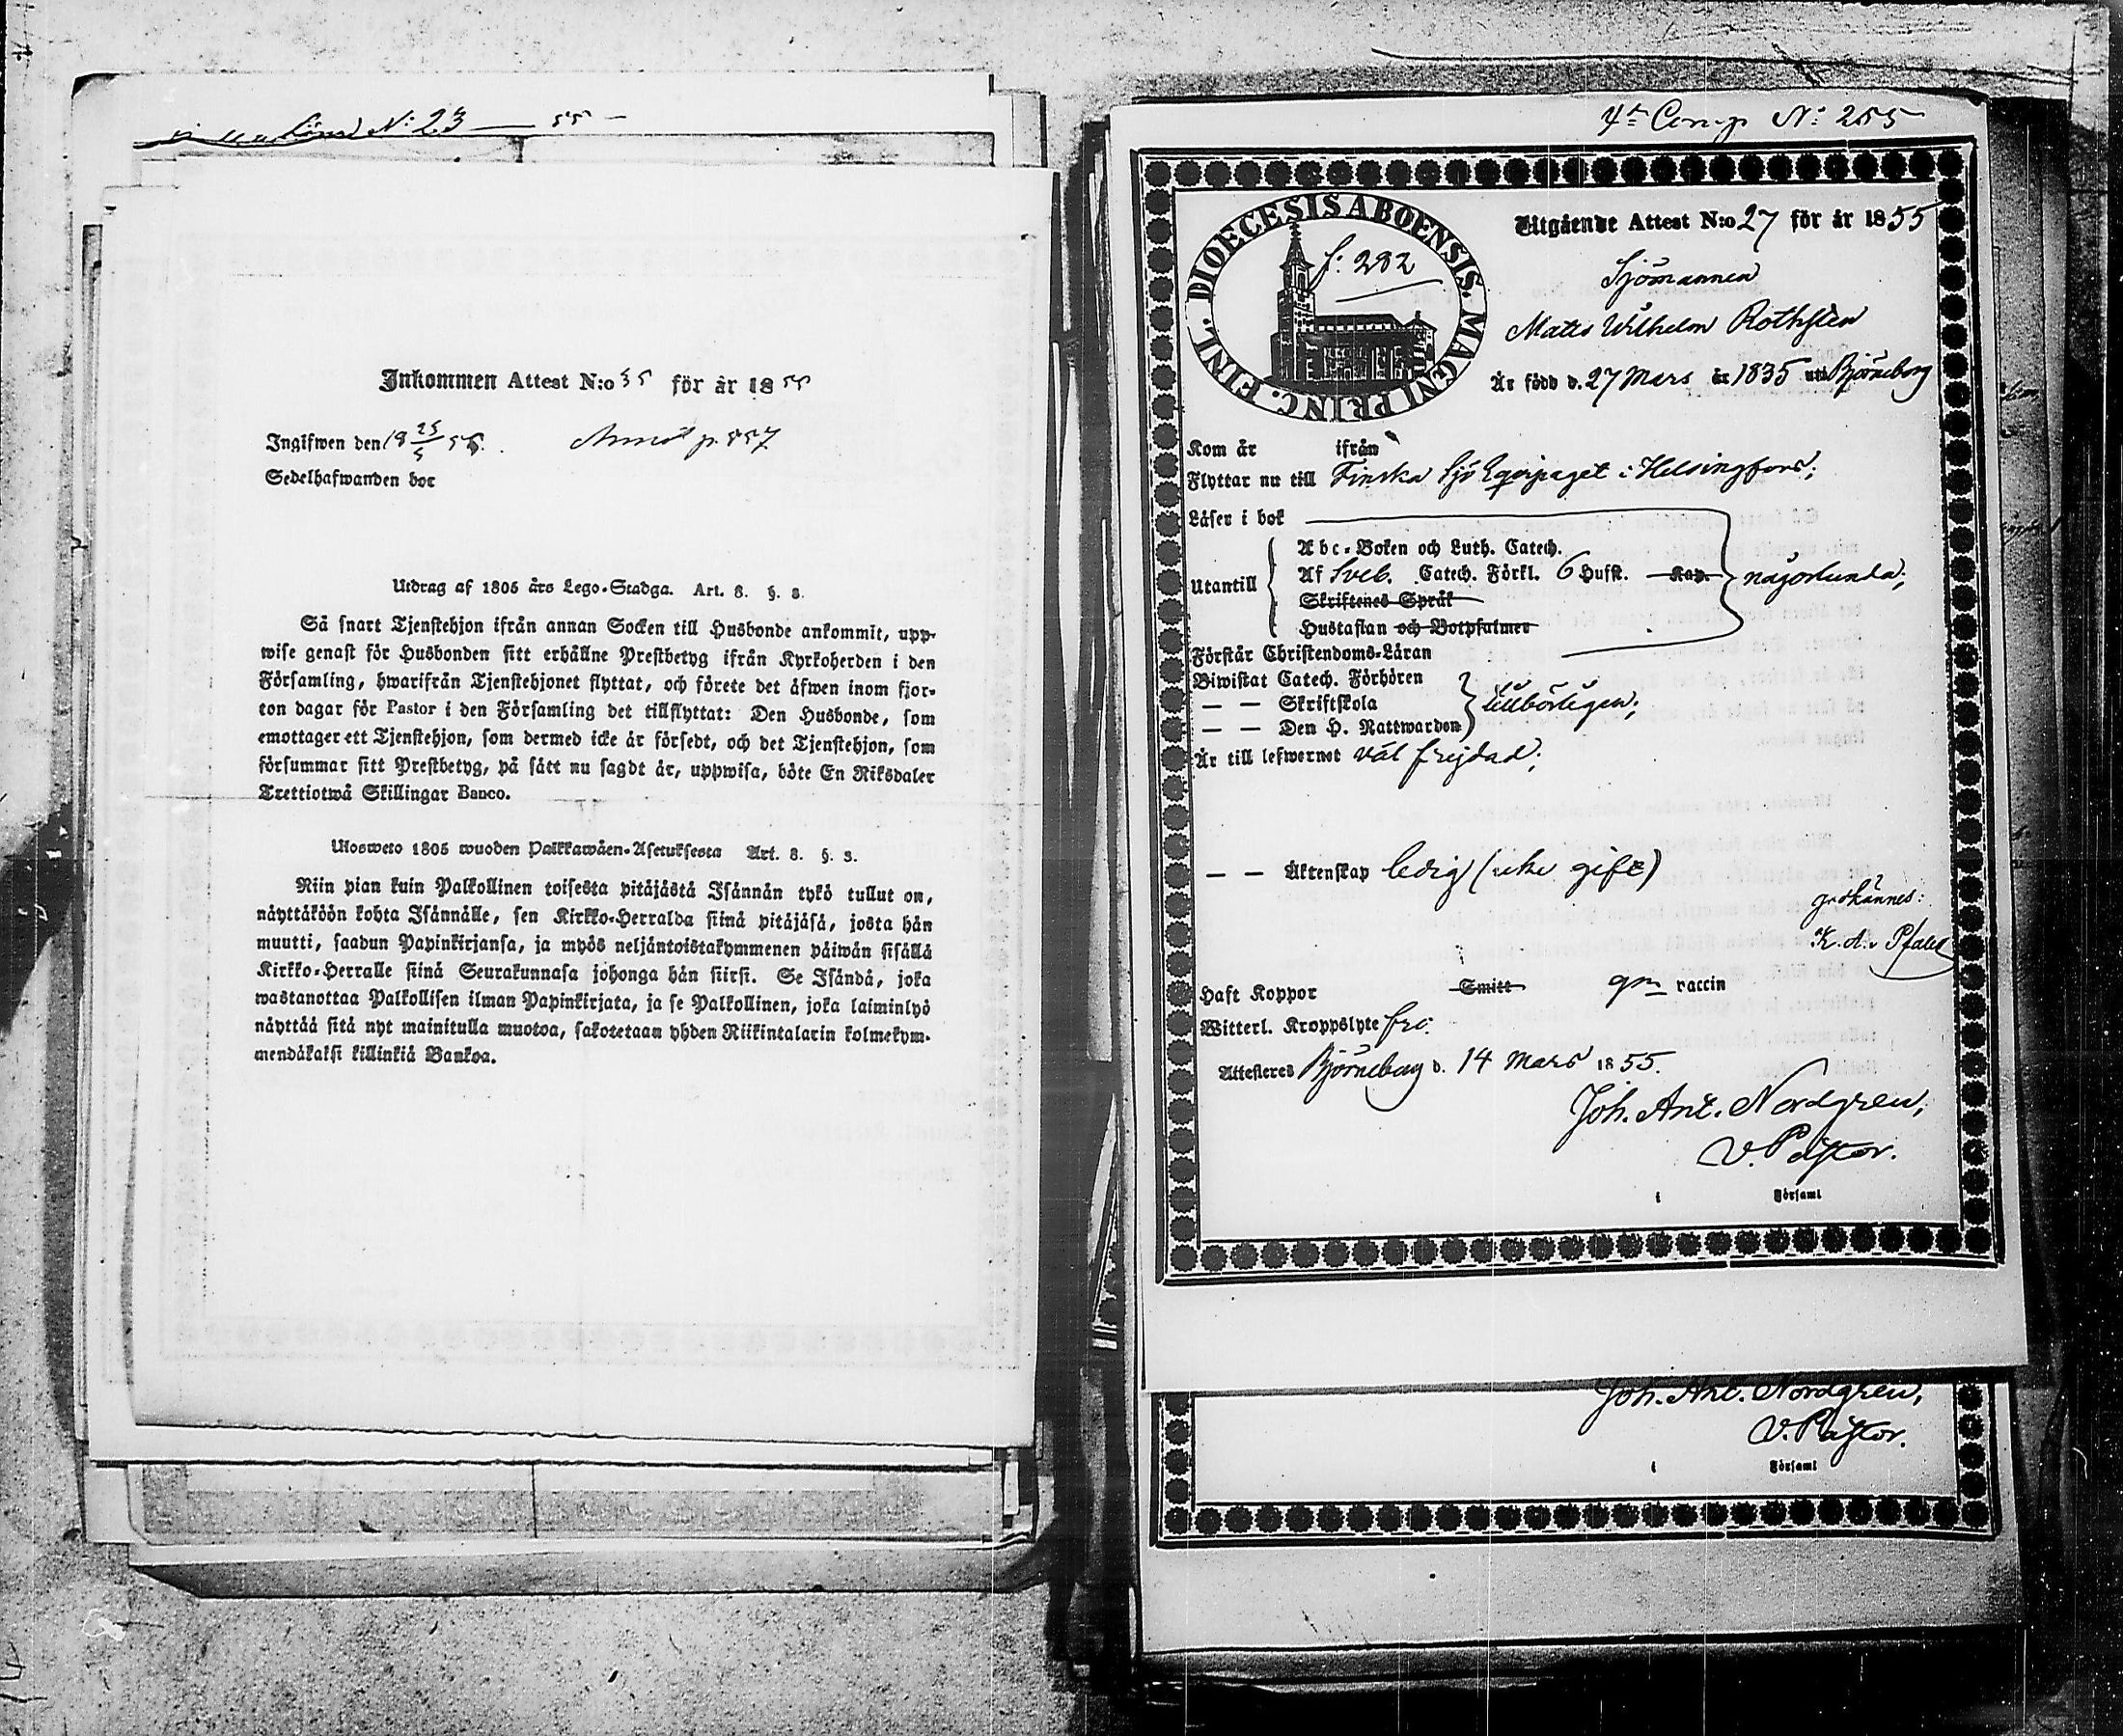 N: 23 — 55 —
Inkommen Attest N:o 35 för år 1855
Ingifwen den 18 25/5 55. p. 857
Sedelhafwanden bor
Utdrag af 1805 års Lego-Stadga. Art. 8. §. 3.
Så snart Tjenstehjon ifrån annan Socken till Husbonde ankommit, upp-
wise genast för Husbonden sitt erhållne Prestbetyg ifrån Kyrkoherden i den
Församling, hwarifrån Tjenstehjonet flyttat, och förete det äfwen inom fjor-
ton dagar för Pastor i den Församling det tillflyttat: Den Husbonde, som
emottager ett Tjenstehjon, som dermed icke är försedt, och det Tjenstehjon, som
försummar sitt Prestbetyg, på sätt nu sagdt är, uppwisa, böte En Riksdaler
Trettiotwå Skillingar Banco.
Ulosweto 1805 wuoden Palkkawäen-Asetuksesta Art. 8. §. 3.
Niin pian kuin Palkollinen toisesta pitäjästä Isännän tykö tullut on,
näyttäköön kohta Isännälle, sen Kirkko-Herralda siinä pitäjäsä, josta hän
muutti, saadun Papinkirjansa, ja myös neljäntoistakymmenen päiwän sisällä
Kirkko-Herralle siinä Seurakunnasa johonga hän siirsi. Se Isändä, joka
wastanottaa Palkollisen ilman Papinkirjata, ja se Palkollinen, joka laiminlyö
näyttää sitä nyt mainitulla muotoa, sakotetaan yhden Riikintalarin kolmekym-
mendäkaksi killinkiä Bankoa.
4de Comp N: 255
DIOECESIS ABOENSIS. MAGNI PRINC. FINL.
f: 282
Utgående Attest N:o 27 för år 1855
Sjömannen
Matts Wilhelm Rothsten
År född d. 27 Mars år 1835 uti Björneborg
Kom år ifrån
Flyttar nu till Finska Sjö Equipaget i Helsingfors;
Läser i bok
Abc-Boken och Luth. Catech.
Utantill Af Sveb. Catech. Förkl. 6 Hufst. Kap. någorlunda;
Skriftenes Språk
Hustaflan och Botpsalmer
Förstår Christendoms-Läran
Biwistat Catech. Förhören
— — Skriftskola tillbörligen;
— — Den H. Nattwarden
Är till lefwernet väl frejdad;
— — Äktenskap ledig (icke gift)
K. A. Pfaler
Haft Koppor Smitt gm vaccin
Witterl. Kroppslyte fri.
Attesteres Björneborg d. 14 Mars 1855.
Joh. Ant. Nordgren,
V. Pastor.
i Församl
Joh. Ant. Nordgren,
V. Pastor.
i Församl